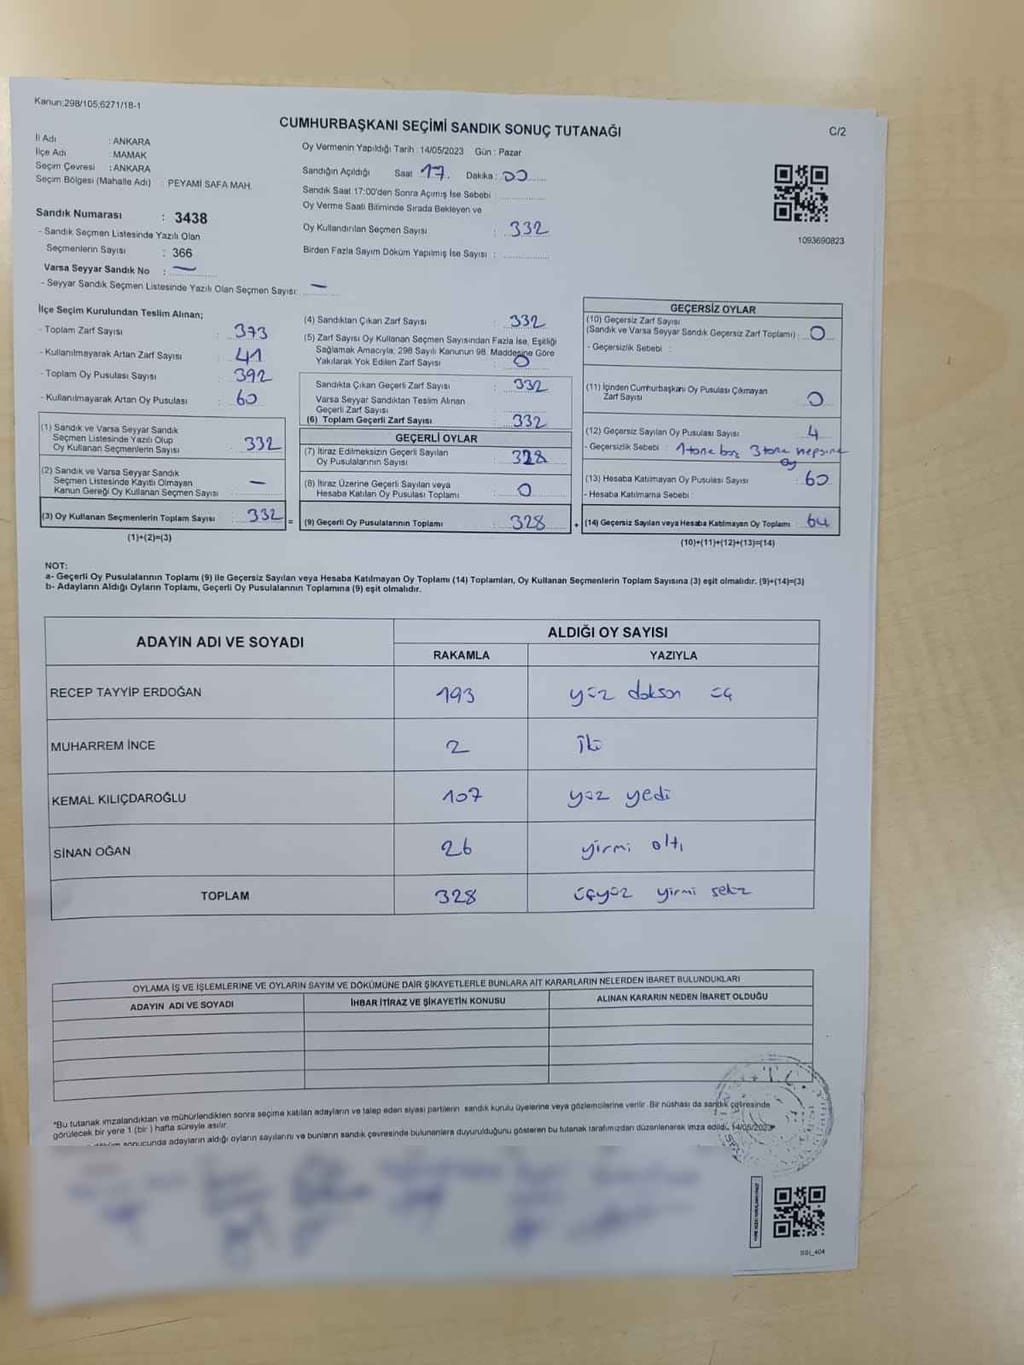 Kanun:298/105;6271/18-1
CUMHURBAŞKANI SEÇİMİ SANDIK SONUÇ TUTANAĞI
C/2
İl Adı : ANKARA
İlçe Adı : MAMAK
Seçim Çevresi : ANKARA
Seçim Bölgesi (Mahalle Adı) : PEYAMİ SAFA MAH.
Sandık Numarası : 3438
- Sandık Seçmen Listesinde Yazılı Olan
Seçmenlerin Sayısı : 366
Varsa Seyyar Sandık No : —
- Seyyar Sandık Seçmen Listesinde Yazılı Olan Seçmen Sayısı: —
Oy Vermenin Yapıldığı Tarih : 14/05/2023 Gün : Pazar
Sandığın Açıldığı Saat 17. Dakika : 00
Sandık Saat 17:00'den Sonra Açımış İse Sebebi :
Oy Verme Saati Bitiminde Sırada Bekleyen ve
Oy Kullandırılan Seçmen Sayısı : 332
Birden Fazla Sayım Döküm Yapılmış İse Sayısı :
1093690823
İlçe Seçim Kurulundan Teslim Alınan;
- Toplam Zarf Sayısı : 373
- Kullanılmayarak Artan Zarf Sayısı : 41
- Toplam Oy Pusulası Sayısı : 392
- Kullanılmayarak Artan Oy Pusulası : 60
(1) Sandık ve Varsa Seyyar Sandık
Seçmen Listesinde Yazılı Olup
Oy Kullanan Seçmenlerin Sayısı : 332
(2) Sandık ve Varsa Seyyar Sandık
Seçmen Listesinde Kayıtlı Olmayan
Kanun Gereği Oy Kullanan Seçmen Sayısı —
(3) Oy Kullanan Seçmenlerin Toplam Sayısı : 332 =
(1)+(2)=(3)
(4) Sandıktan Çıkan Zarf Sayısı : 332
(5) Zarf Sayısı Oy Kullanan Seçmen Sayısından Fazla İse, Eşitliği
Sağlamak Amacıyla; 298 Sayılı Kanunun 98. Maddesine Göre
Yakılarak Yok Edilen Zarf Sayısı : 0
Sandıkta Çıkan Geçerli Zarf Sayısı : 332
Varsa Seyyar Sandıktan Teslim Alınan
Geçerli Zarf Sayısı
(6) Toplam Geçerli Zarf Sayısı : 332
GEÇERLİ OYLAR
(7) İtiraz Edilmeksizin Geçerli Sayılan
Oy Pusulalarının Sayısı : 328
(8) İtiraz Üzerine Geçerli Sayılan veya
Hesaba Katılan Oy Pusulası Toplamı : 0
(9) Geçerli Oy Pusulalarının Toplamı : 328 +
GEÇERSİZ OYLAR
(10) Geçersiz Zarf Sayısı
(Sandık ve Varsa Seyyar Sandık Geçersiz Zarf Toplamı) : 0
- Geçersizlik Sebebi :
(11) İçinden Cumhurbaşkanı Oy Pusulası Çıkmayan
Zarf Sayısı : 0
(12) Geçersiz Sayılan Oy Pusulası Sayısı : 4
- Geçersizlik Sebebi : 1 tane boş 3 tane hepsine
oy
(13) Hesaba Katılmayan Oy Pusulası Sayısı : 60
- Hesaba Katılmama Sebebi :
(14) Geçersiz Sayılan veya Hesaba Katılmayan Oy Toplamı : 64
(10)+(11)+(12)+(13)=(14)
NOT:
a- Geçerli Oy Pusulalarının Toplamı (9) ile Geçersiz Sayılan veya Hesaba Katılmayan Oy Toplamı (14) Toplamları, Oy Kullanan Seçmenlerin Toplam Sayısına (3) eşit olmalıdır. (9)+(14)=(3)
b- Adayların Aldığı Oyların Toplamı, Geçerli Oy Pusulalarının Toplamına (9) eşit olmalıdır.
ADAYIN ADI VE SOYADI ALDIĞI OY SAYISI
RAKAMLA YAZIYLA
RECEP TAYYİP ERDOĞAN 193 yüz doksan üç
MUHARREM İNCE 2 iki
KEMAL KILIÇDAROĞLU 107 yüz yedi
SİNAN OĞAN 26 yirmi altı
TOPLAM 328 üçyüz yirmi sekiz
OYLAMA İŞ VE İŞLEMLERİNE VE OYLARIN SAYIM VE DÖKÜMÜNE DAİR ŞİKAYETLERLE BUNLARA AİT KARARLARIN NELERDEN İBARET BULUNDUKLARI
ADAYIN ADI VE SOYADI İHBAR İTİRAZ VE ŞİKAYETİN KONUSU ALINAN KARARIN NEDEN İBARET OLDUĞU
*Bu tutanak imzalandıktan ve mühürlendikten sonra seçime katılan adayların ve talep eden siyasi partilerin sandık kurulu üyelerine veya gözlemcilerine verilir. Bir nüshası da sandık çevresinde
görülecek bir yere 1 (bir ) hafta süreyle asılır.
sonucunda adayların aldığı oyların sayılarını ve bunların sandık çevresinde bulunanlara duyurulduğunu gösteren bu tutanak tarafımızdan düzenlenerek imza edildi. 14/05/2023
T.C.